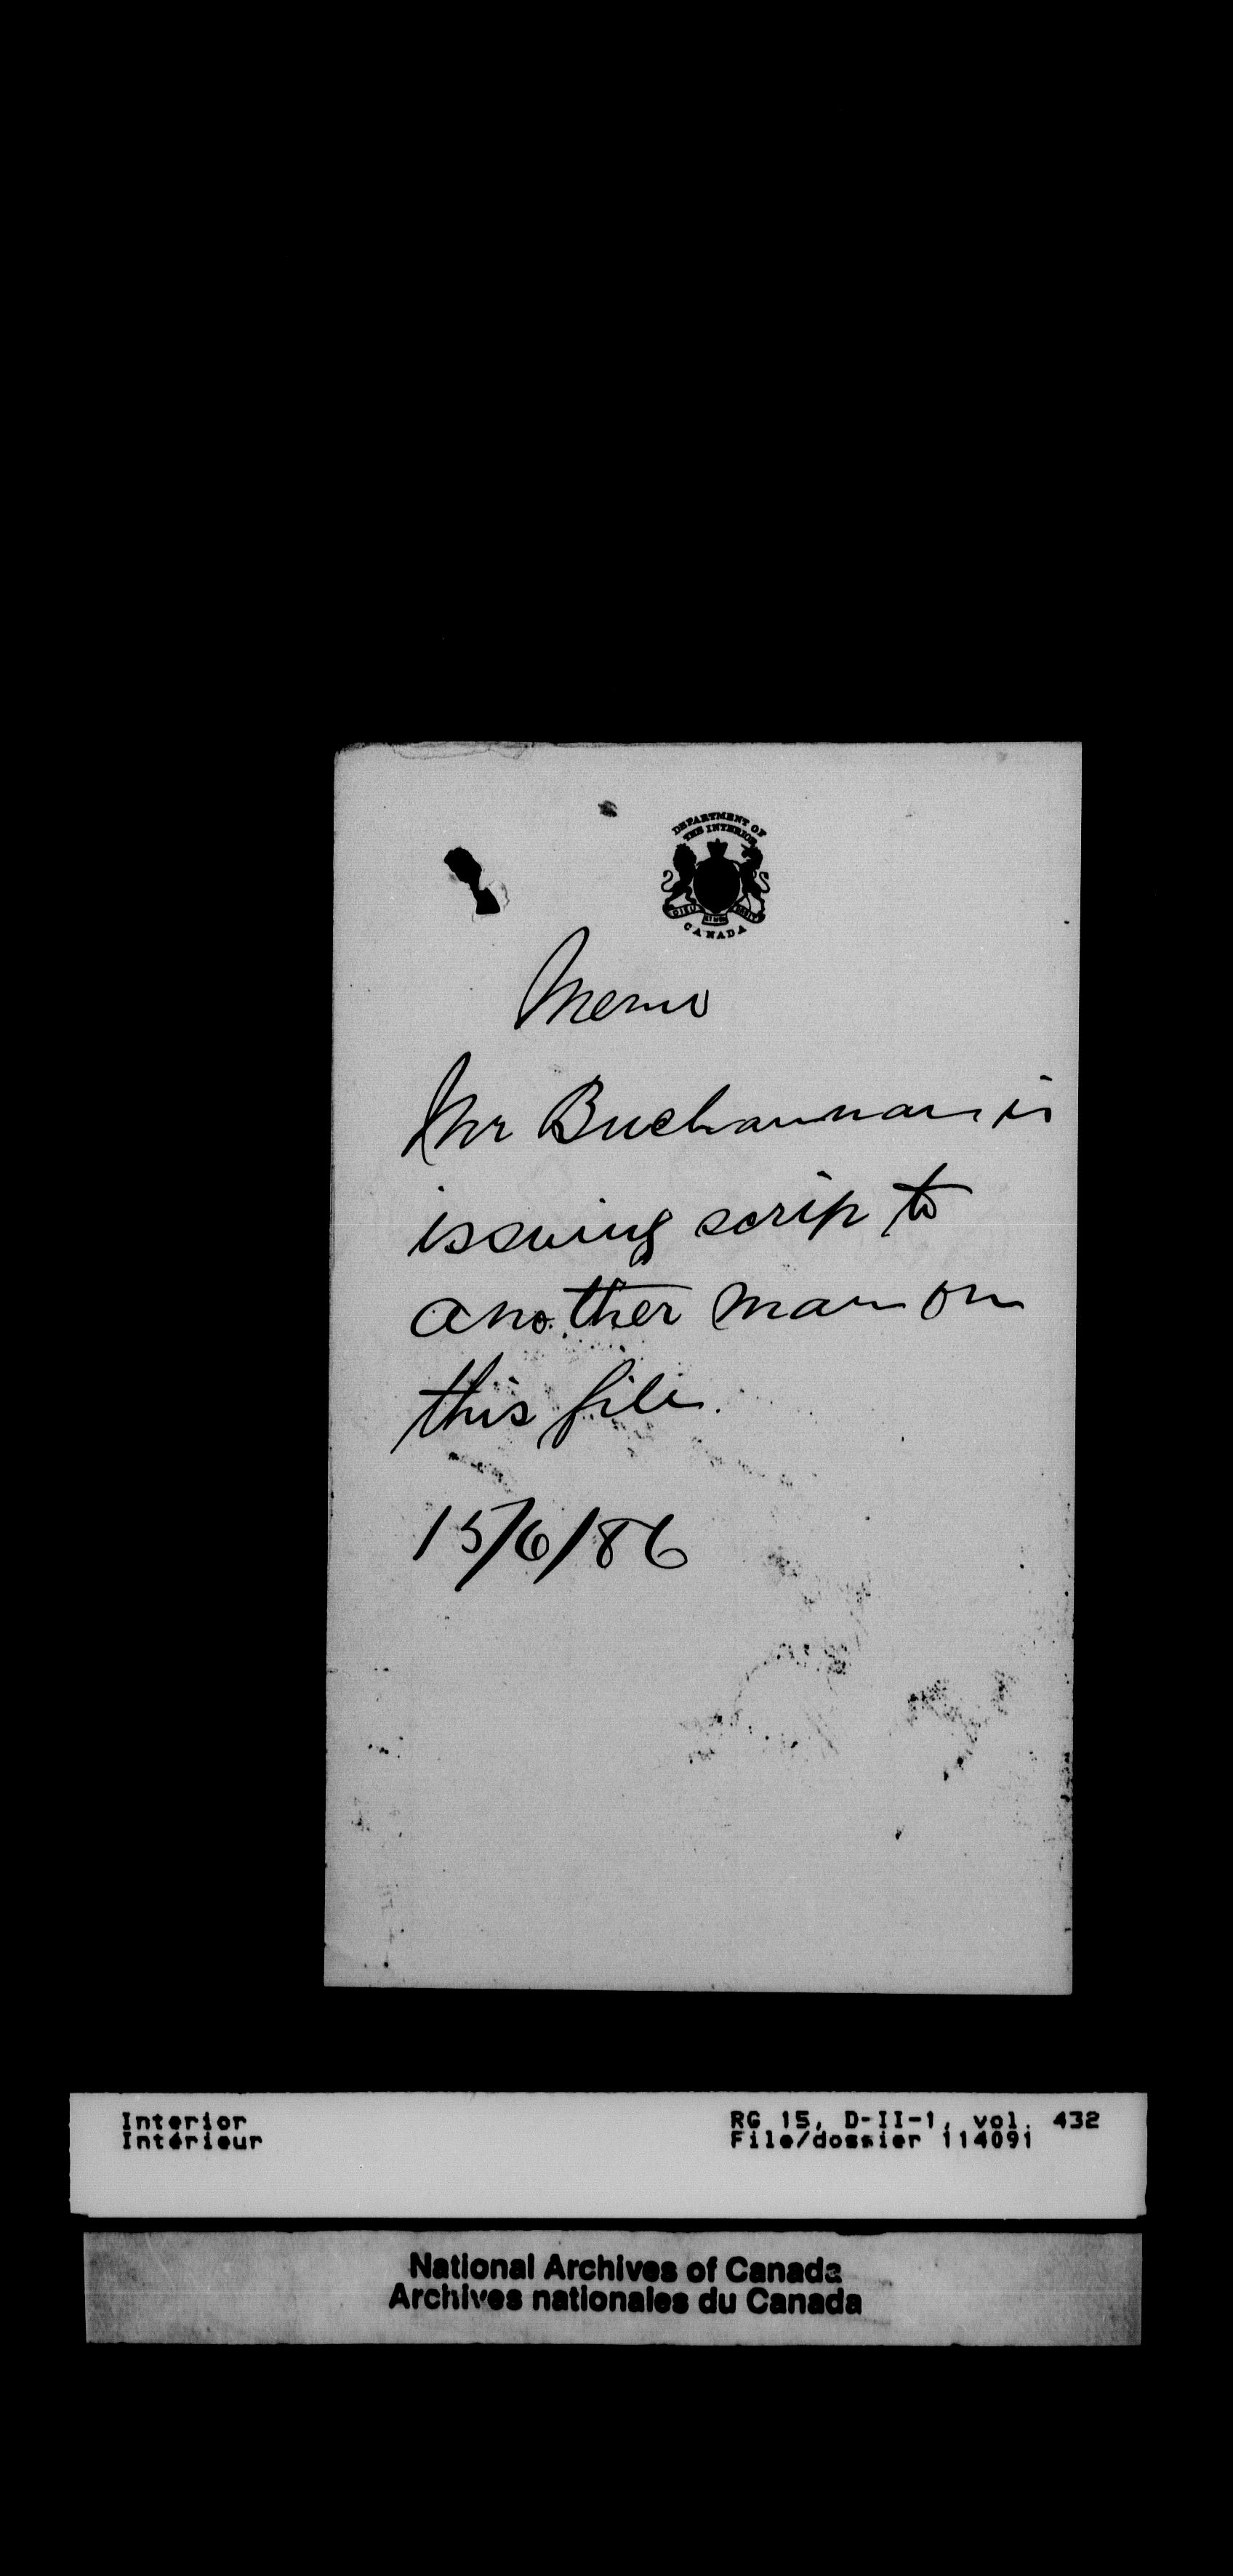 DEPARTMENT OF
THE INTERIOR
CANADA
Memo
Mr Buchannan is
issuing scrip to
another man on
this file.
15/6/86
Interior
Intérieur
RG 15, D-II-1, vol. 432
File/dossier 114091
National Archives of Canada
Archives nationales du Canada